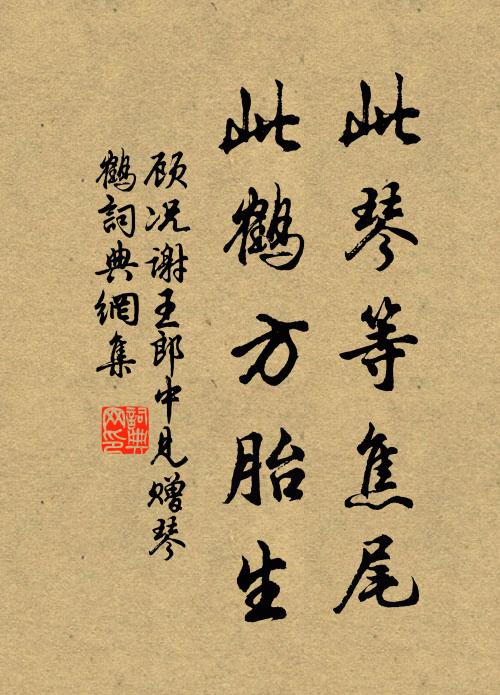 此琴等焦尾
此鹤方胎生
顾况谢王郎中见赠琴
鹤詞典網集
詞典网印